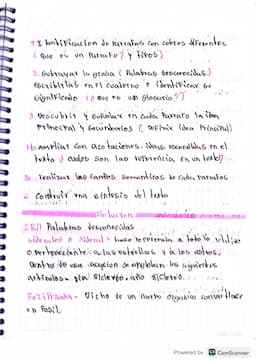 1. Identificacion de Parrafos con colores diferentes
( Que es un Parrafo? y tipos)
2. Subrayar la (Palabras Desconocidas)
escribirlas en el cuaderno e identificar su
significado ¿ que es un glosario??
3 Descubrir y señalar en cada Parrafo la idea
Principal y secundarios ( Definir idea Principal)
4 ampliar con acotaciones: ideas escondidas en el
texto ¿ cuales son las referencia en un texto?
5. Realizar los Campos semanticos de cada Parrafos
6 Construir una sintesis del texto
Solucion
2. R/1 Palabras desconocidas
siderales o sideral = hace referencia a todo lo relativo
o Perteneciente a las estrellas y a los astros.
Dentro de esa se engloban los siguientes
articulos = Dia Siderio = año siderio.
Fosilizada = Dicho de un cuerpo organico convertirse
en fosil.
Powered by CS CamScanner